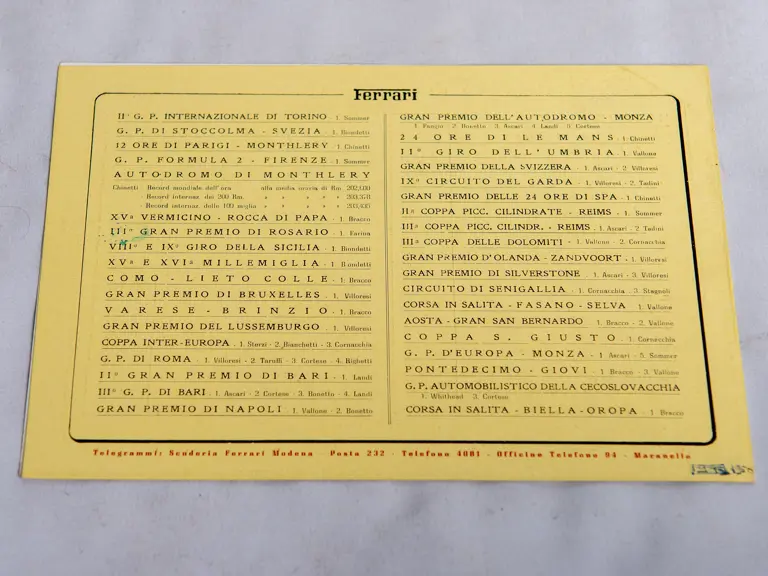 Ferrari
IIº G. P. INTERNAZIONALE DI TORINO - 1. Sommer
G. P. DI STOCCOLMA - SVEZIA - 1. Bonnetti
12 ORE DI PARIGI - MONTHLERY - 1. Chinetti
G. P. FORMULA 2 - FIRENZE - 1. Sommer
AUTODROMO DI MONTHLERY
Chinetti - Record mondiale dell'ora alla media oraria di Km.
Record internaz. dei 200 Km. » » » »
Record internaz. delle 100 miglia » » » »
XVª VERMICINO - ROCCA DI PAPA - 1. Bracco
IIIº GRAN PREMIO DI ROSARIO - 1. Farina
VIIIº E IXº GIRO DELLA SICILIA - 1. Biondetti
XVª E XVIª MILLEMIGLIA - 1. Biondetti
COMO - LIETO COLLE - 1. Bracco
GRAN PREMIO DI BRUXELLES - 1. Villoresi
VARESE - BRINZIO - 1. Bracco
GRAN PREMIO DEL LUSSEMBURGO - 1. Villoresi
COPPA INTER-EUROPA - 1. Sterzi - 2. Bianchetti - 3. Cornacchia
G. P. DI ROMA - 1. Villoresi - 2. Taruffi - 3. Cortese - 4. Righetti
IIº GRAN PREMIO DI BARI - 1. Landi
IIIº G. P. DI BARI - 1. Ascari - 2. Cortese - 3. Bonetto - 4. Landi
GRAN PREMIO DI NAPOLI - 1. Vallone - 2. Bonetto
GRAN PREMIO DELL'AUTODROMO - MONZA
1. Fangio - 2. Bonetto - 3. Ascari - 4. Landi - 5. Cortese
24 ORE DI LE MANS - 1. Chinetti
IIº GIRO DELL'UMBRIA - 1. Vallone
GRAN PREMIO DELLA SVIZZERA - 1. Ascari - 2. Villoresi
IXº CIRCUITO DEL GARDA - 1. Villoresi - 2. Tadini
GRAN PREMIO DELLE 24 ORE DI SPA - 1. Chinetti
IIª COPPA PICC. CILINDRATE - REIMS - 1. Sommer
IIIª COPPA PICC. CILINDR. - REIMS - 1. Ascari - 2. Tadini
IIIª COPPA DELLE DOLOMITI - 1. Vallone - 2. Cornacchia
GRAN PREMIO D'OLANDA - ZANDVOORT - 1. Villoresi
GRAN PREMIO DI SILVERSTONE - 1. Ascari - 3. Villoresi
CIRCUITO DI SENIGALLIA - 1. Cornacchia - 3. Stagnoli
CORSA IN SALITA - FASANO - SELVA - 1. Vallone
AOSTA - GRAN SAN BERNARDO - 1. Bracco - 2. Vallone
COPPA S. GIUSTO - 1. Cornacchia
G. P. D'EUROPA - MONZA - 1 Ascari - 5. Sommer
PONTEDECIMO - GIOVI - 1 Bracco - 3. Vallone
G. P. AUTOMOBILISTICO DELLA CECOSLOVACCHIA
1. Whithead - 3. Cortese
CORSA IN SALITA - BIELLA - OROPA - 1 Bracco
Telegrammi: Scuderia Ferrari Modena - Posta 232 - Telefono 4081 - Officine Telefono 94 - Maranello